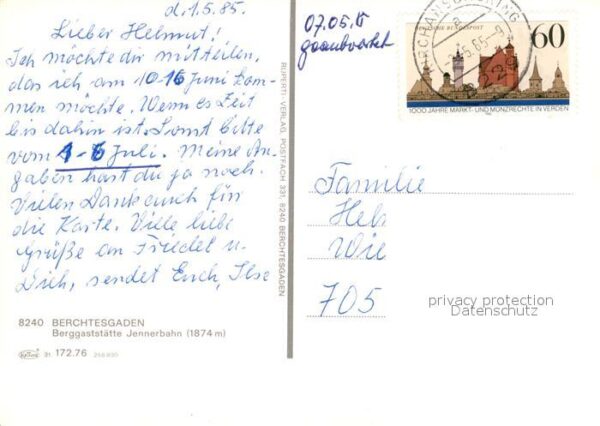 d. 1.5.85.
Lieber Helmut!
Ich möchte dir mitteilen,
das ich am 10-16 Juni kom-
men möchte. Wenn es Zeit
bis dahin ist. Sonst bitte
vom 1-6 Juli. Meine An-
gaben hast du ja noch.
Vielen Dank auch für
die Karte. Viele liebe
Grüße an Friedel u.
Dich, sendet Euch, Ilse
8240 BERCHTESGADEN
Berggaststätte Jennerbahn (1874 m)
31 172.76
RUPERTI-VERLAG, POSTFACH 331, 8240 BERCHTESGADEN
07.05.
60
1000 JAHRE MARKT- UND MÜNZRECHTE IN VERDEN
Familie
Heb
Wie
705
privacy protection
Datenschutz